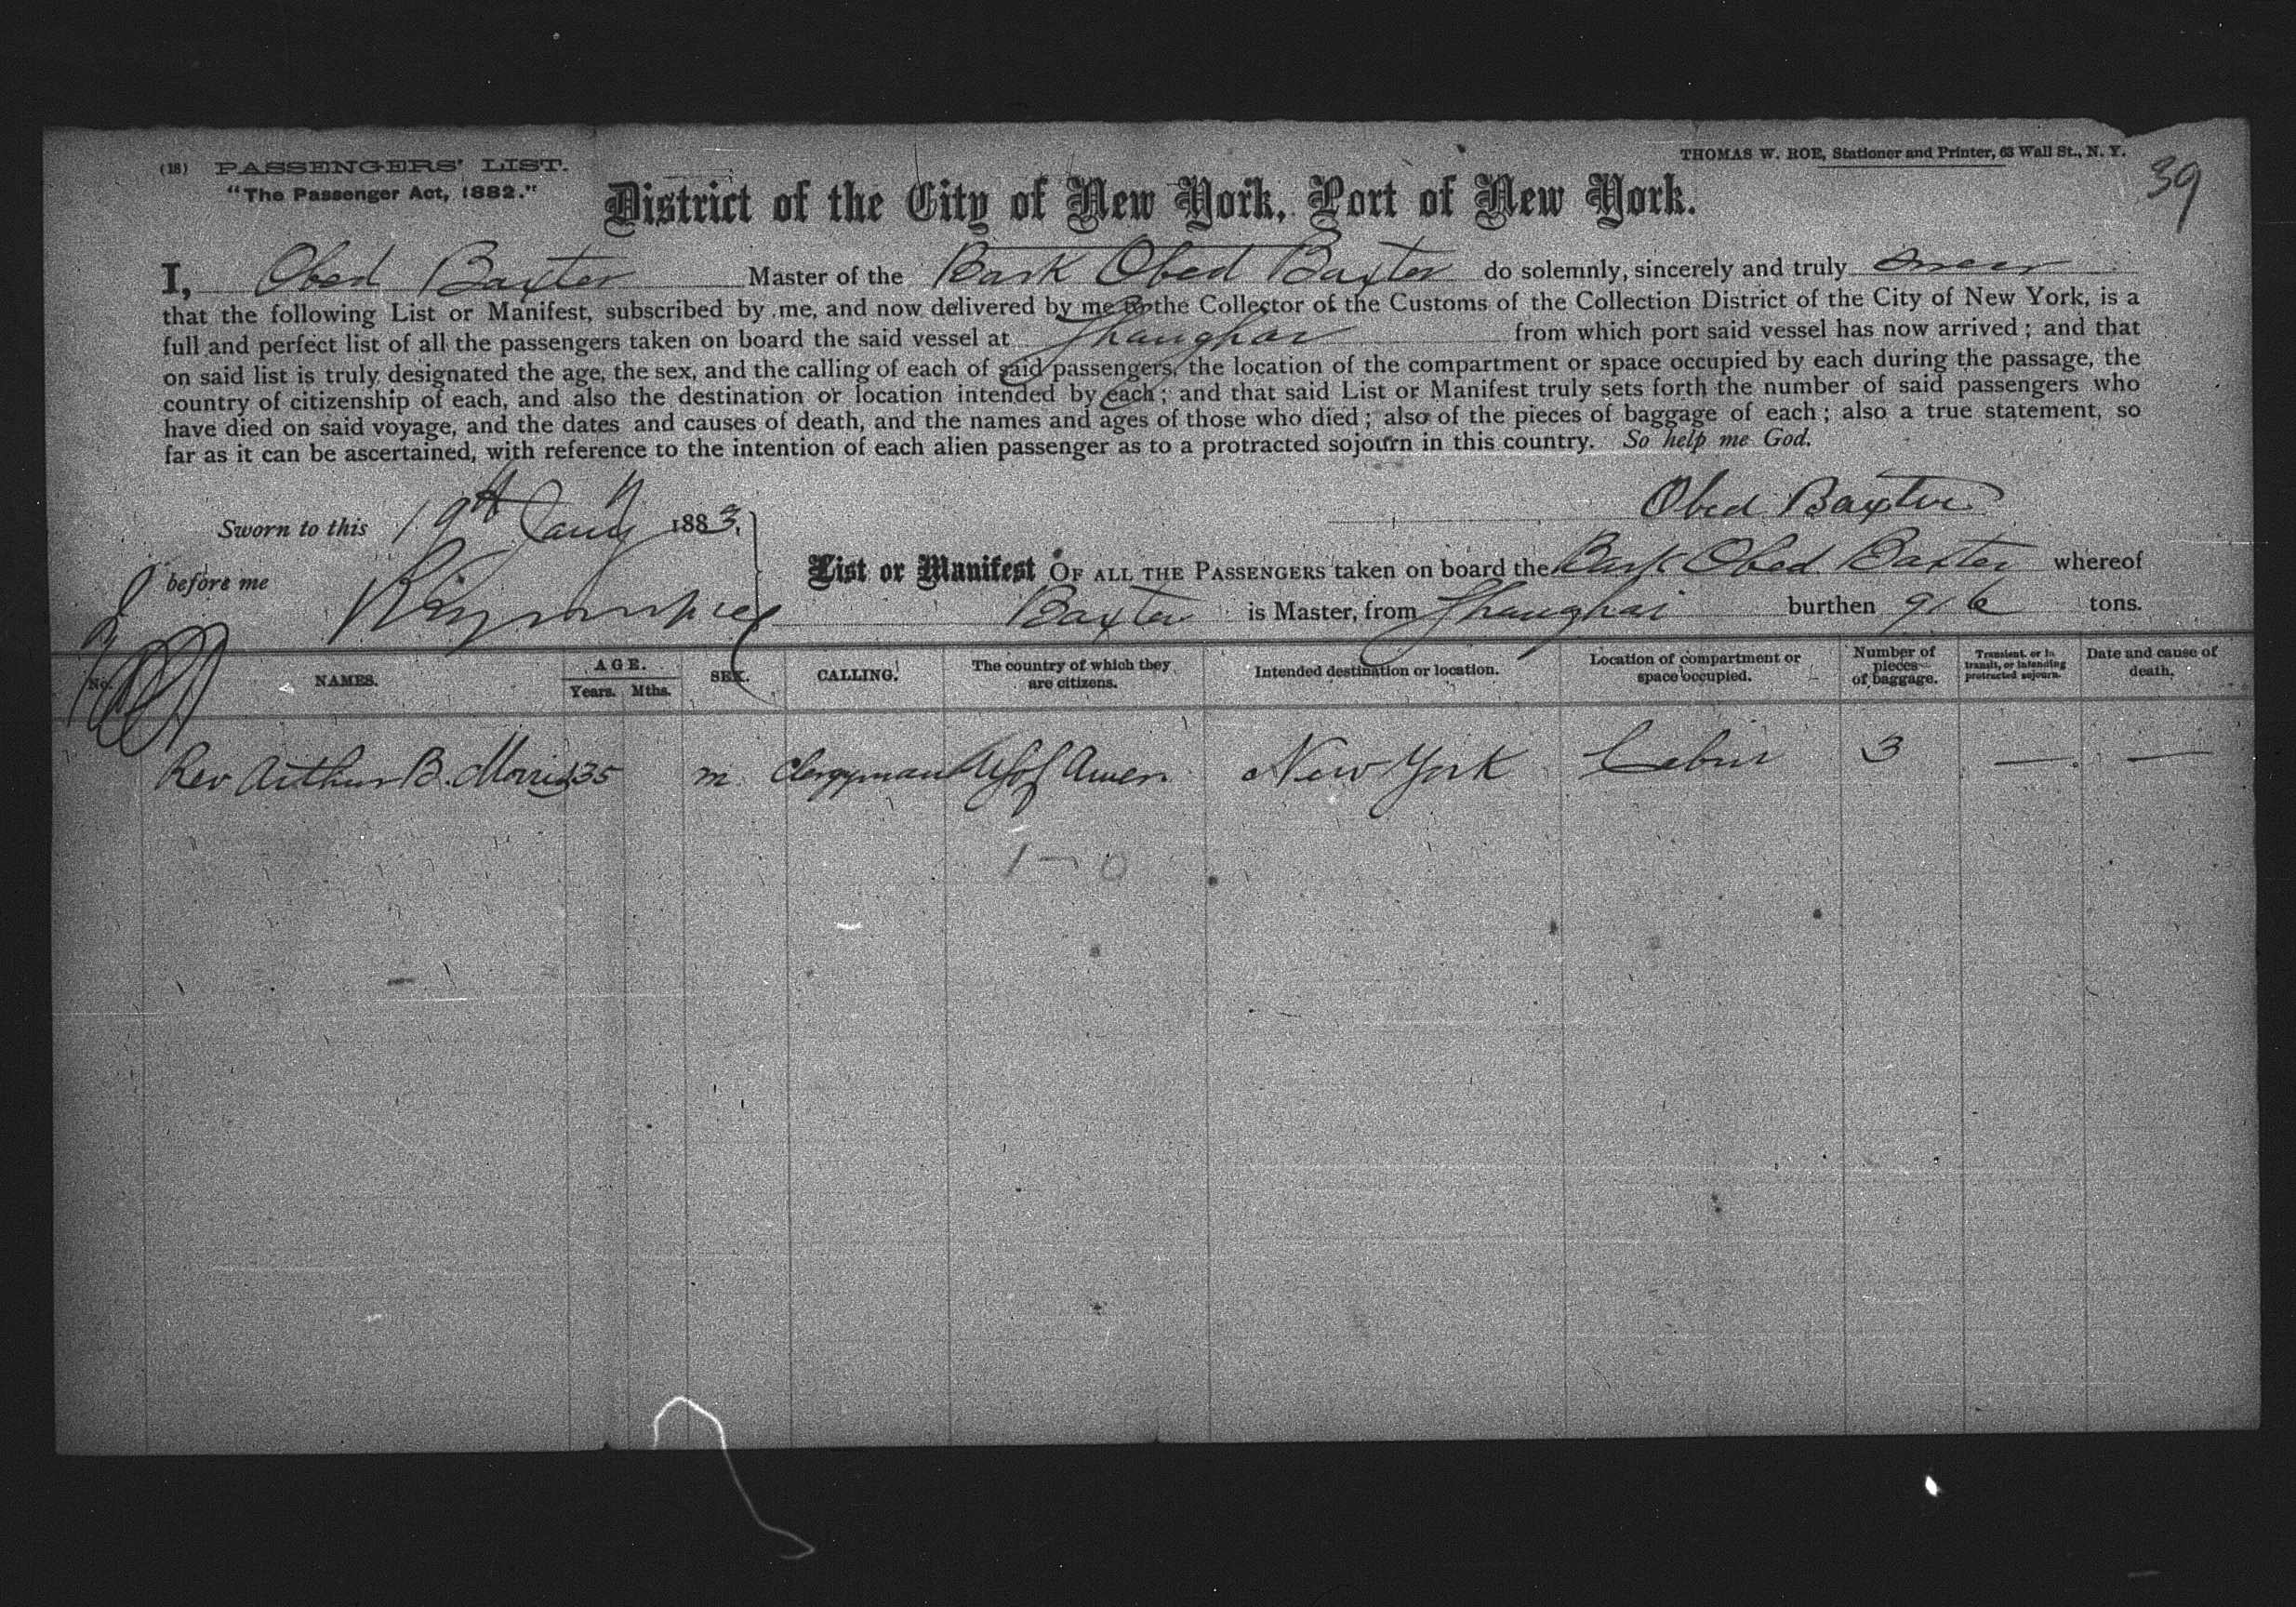 (18) PASSENGERS' LIST.
"The Passenger Act, 1882."
THOMAS W. ROE, Stationer and Printer, 63 Wall St., N. Y.
39
District of the City of New York, Port of New York.
I, Obed Baxter Master of the Bark Obed Baxter do solemnly, sincerely and truly swear
that the following List or Manifest, subscribed by me, and now delivered by me to the Collector of the Customs of the Collection District of the City of New York, is a
full and perfect list of all the passengers taken on board the said vessel at Shanghai from which port said vessel has now arrived; and that
on said list is truly designated the age, the sex, and the calling of each of said passengers, the location of the compartment or space occupied by each during the passage, the
country of citizenship of each, and also the destination or location intended by each; and that said List or Manifest truly sets forth the number of said passengers who
have died on said voyage, and the dates and causes of death, and the names and ages of those who died; also of the pieces of baggage of each; also a true statement, so
far as it can be ascertained, with reference to the intention of each alien passenger as to a protracted sojourn in this country. So help me God.
Sworn to this 19th Jany 1883, Obed Baxter
before me
List or Manifest OF ALL THE PASSENGERS taken on board the Bark Obed Baxter whereof
Baxter is Master, from Shanghai burthen 916 tons.
No. NAMES. AGE. Years. Mths. SEX. CALLING. The country of which they are citizens. Intended destination or location. Location of compartment or space occupied. Number of pieces of baggage. Transient, or in transit, or intending protracted sojourn. Date and cause of death.
Rev Arthur B. Morris 35 m. Clergyman US of Amer. New York Cabin 3 — —
1-0